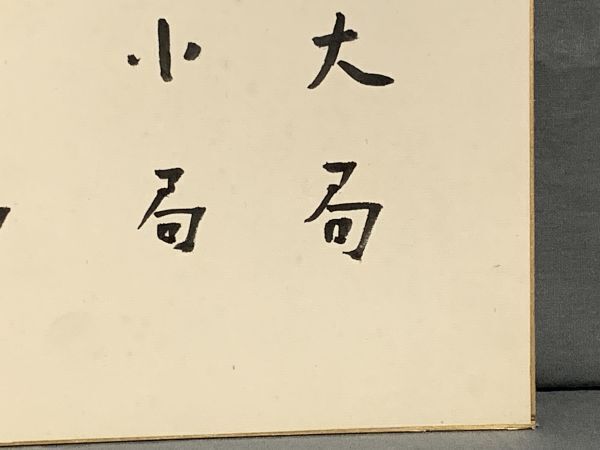 大局
小局